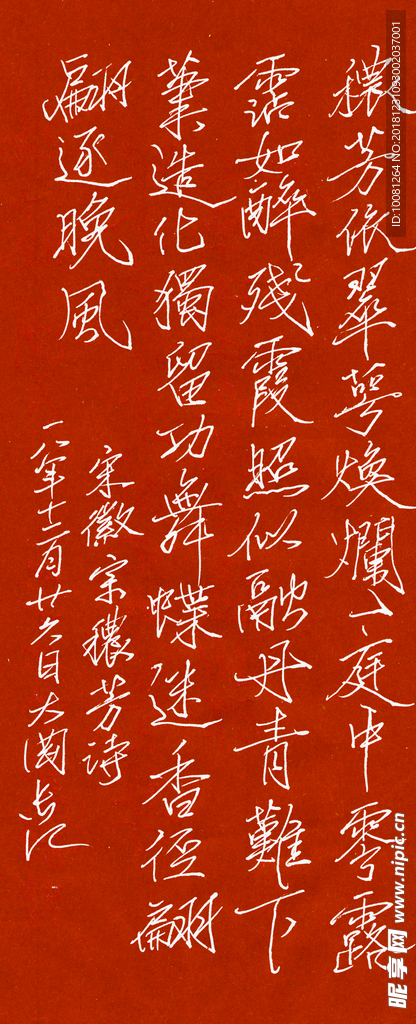 穠芳依翠萼煥爛一庭中零露
霑如醉殘霞照似融丹青難下
筆造化獨留功舞蝶迷香徑翩
翩逐晚風
宋徽宗穠芳詩
一八年十二月廿六日大
ID:10081264 NO:20181231093002037001
昵享网 www.nipic.cn